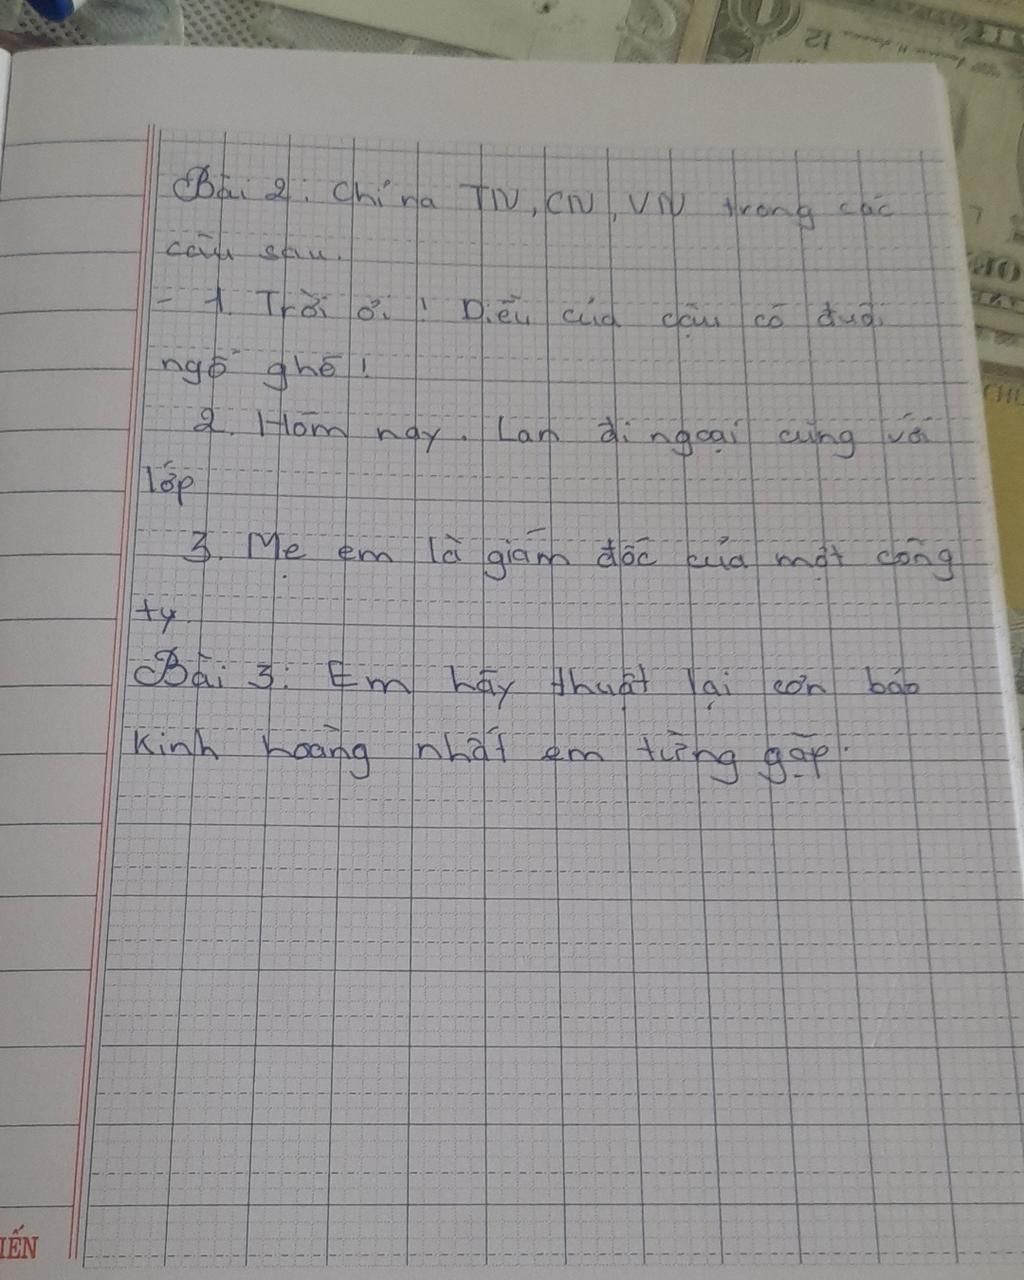 Bài 2: Chỉ ra TN, CN, VN trong các
câu sau.
- 1. Trời ơi! Diều của cậu có đuôi
ngộ ghê!
2. Hôm nay. Lan đi ngoại cùng với
lớp
3. Mẹ em là giám đốc của một công
ty.
Bài 3: Em hãy thuật lại cơn bão
kinh hoàng nhất em từng gặp.
IẾN
12